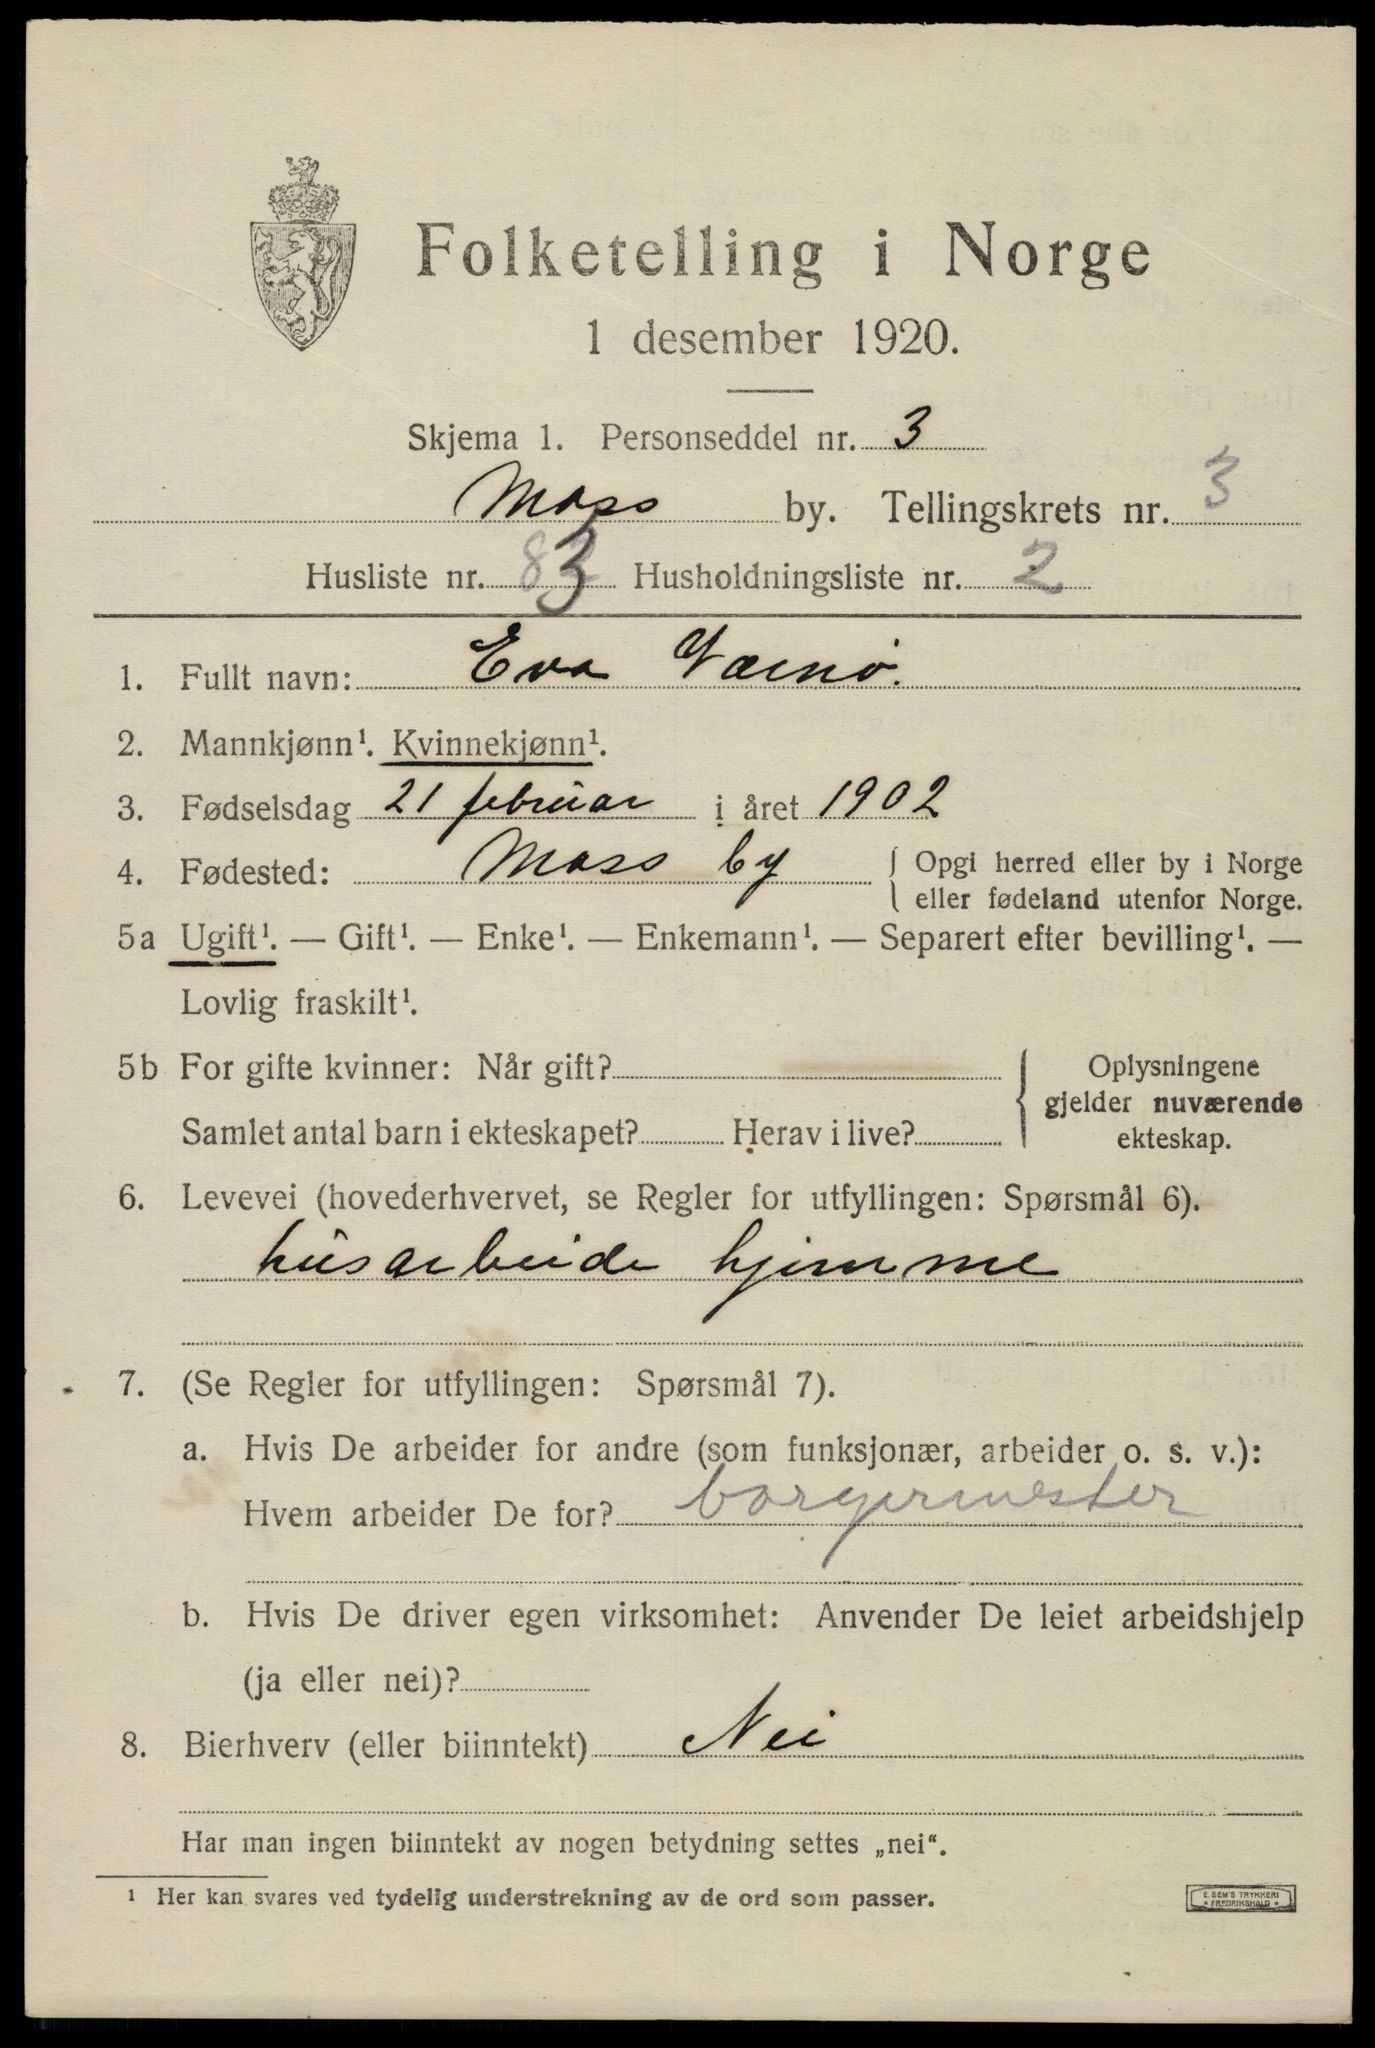 Folketelling i Norge
1 desember 1920.
Skjema 1. Personseddel nr. 3
Moss by. Tellingskrets nr. 3
Husliste nr. 83 Husholdningsliste nr. 2
1. Fullt navn: Eva Værnø.
2. Mannkjønn¹. Kvinnekjønn¹.
3. Fødselsdag 21 februar i året 1902
4. Fødested: Moss by { Opgi herred eller by i Norge
eller fødeland utenfor Norge.
5a Ugift¹. — Gift¹. — Enke¹. — Enkemann¹. — Separert efter bevilling¹. —
Lovlig fraskilt¹.
5b For gifte kvinner: Når gift?
Samlet antal barn i ekteskapet? Herav i live?
{ Oplysningene
gjelder nuværende
ekteskap.
6. Levevei (hovederhvervet, se Regler for utfyllingen: Spørsmål 6).
husarbeide hjemme
7. (Se Regler for utfyllingen: Spørsmål 7).
a. Hvis De arbeider for andre (som funksjonær, arbeider o. s. v.):
Hvem arbeider De for? borgermester
b. Hvis De driver egen virksomhet: Anvender De leiet arbeidshjelp
(ja eller nei)?
8. Bierhverv (eller biinntekt) Nei
Har man ingen biinntekt av nogen betydning settes „nei“.
¹ Her kan svares ved tydelig understrekning av de ord som passer.
E. SEM'S TRYKKERI
• FREDRIKSHALD •